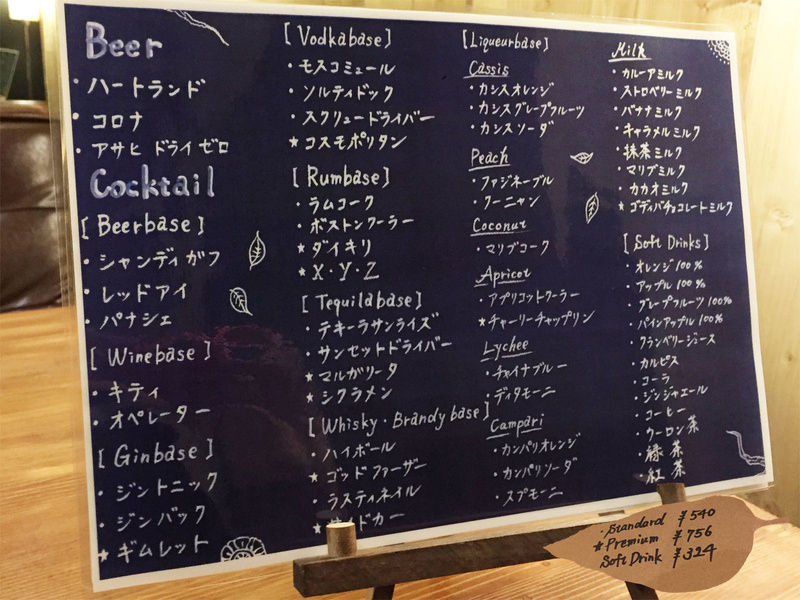 Beer
・ハートランド
・コロナ
・アサヒ ドライ ゼロ
Cocktail
[Beerbase]
・シャンディ ガフ
・レッドアイ
・パナシェ
[Winebase]
・キティ
・オペレーター
[Ginbase]
・ジントニック
・ジンバック
★ギムレット
[Vodkabase]
・モスコミュール
・ソルティドック
・スクリュードライバー
★コスモポリタン
[Rumbase]
・ラムコーク
・ボストンクーラー
★ダイキリ
★X・Y・Z
[Tequilabase]
・テキーラサンライズ
・サンセットドライバー
★マルガリータ
★シクラメン
[Whisky・Brandy base]
・ハイボール
★ゴッドファーザー
・ラスティネイル
ドカー
[Liqueurbase]
Cassis
・カシスオレンジ
・カシスグレープフルーツ
・カシスソーダ
Peach
・ファジネーブル
・クーニャン
Coconut
・マリブコーク
Apricot
・アプリコットクーラー
★チャーリーチャップリン
Lychee
・チャイナブルー
・ディタモーニ
Campari
・カンパリオレンジ
・カンパリソーダ
・スプモーニ
Milk
・カルーアミルク
・ストロベリーミルク
・バナナミルク
・キャラメルミルク
・抹茶ミルク
・マリブミルク
・カカオミルク
★ゴディバチョコレートミルク
[Soft Drinks]
・オレンジ100%
・アップル100%
・グレープフルーツ100%
・パインアップル100%
・クランベリージュース
・カルピス
・コーラ
・ジンジャエール
・コーヒー
・ウーロン茶
・緑茶
・紅茶
・Standard ¥540
★Premium ¥756
Soft Drink ¥324